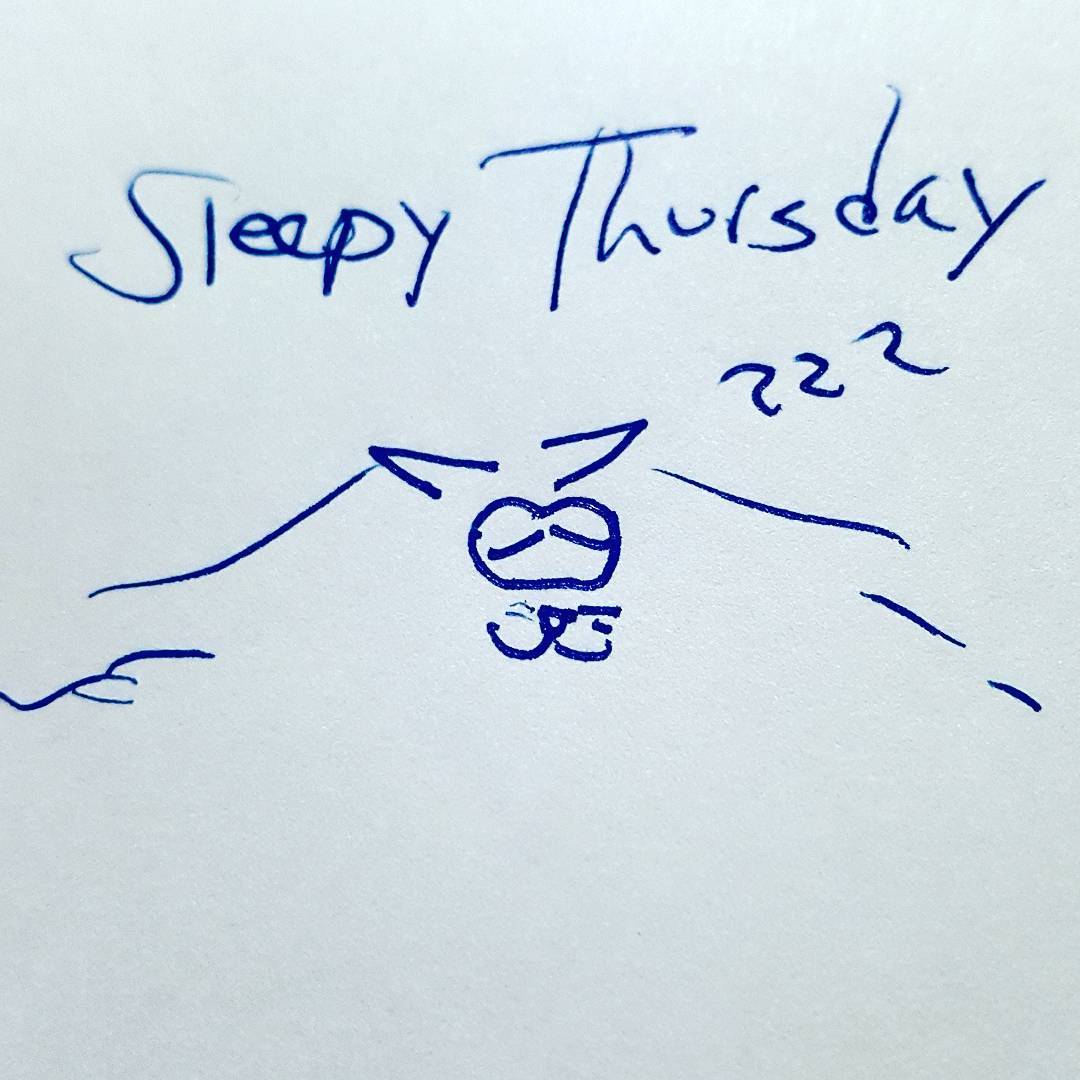 Sleepy Thursday
zzz